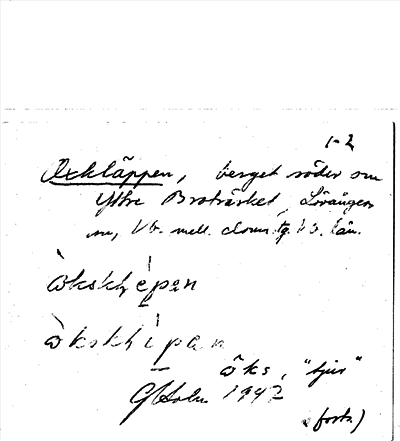 1-2
Oxkläppen, berget söder om
Yttre Broträsket, Lövångers
sn, Vb. mell. doms.tg. Vb. län.
òkskḷèpen
òkskḷìpan
ôks, "tjur"
G Holm 1942
(forts.)